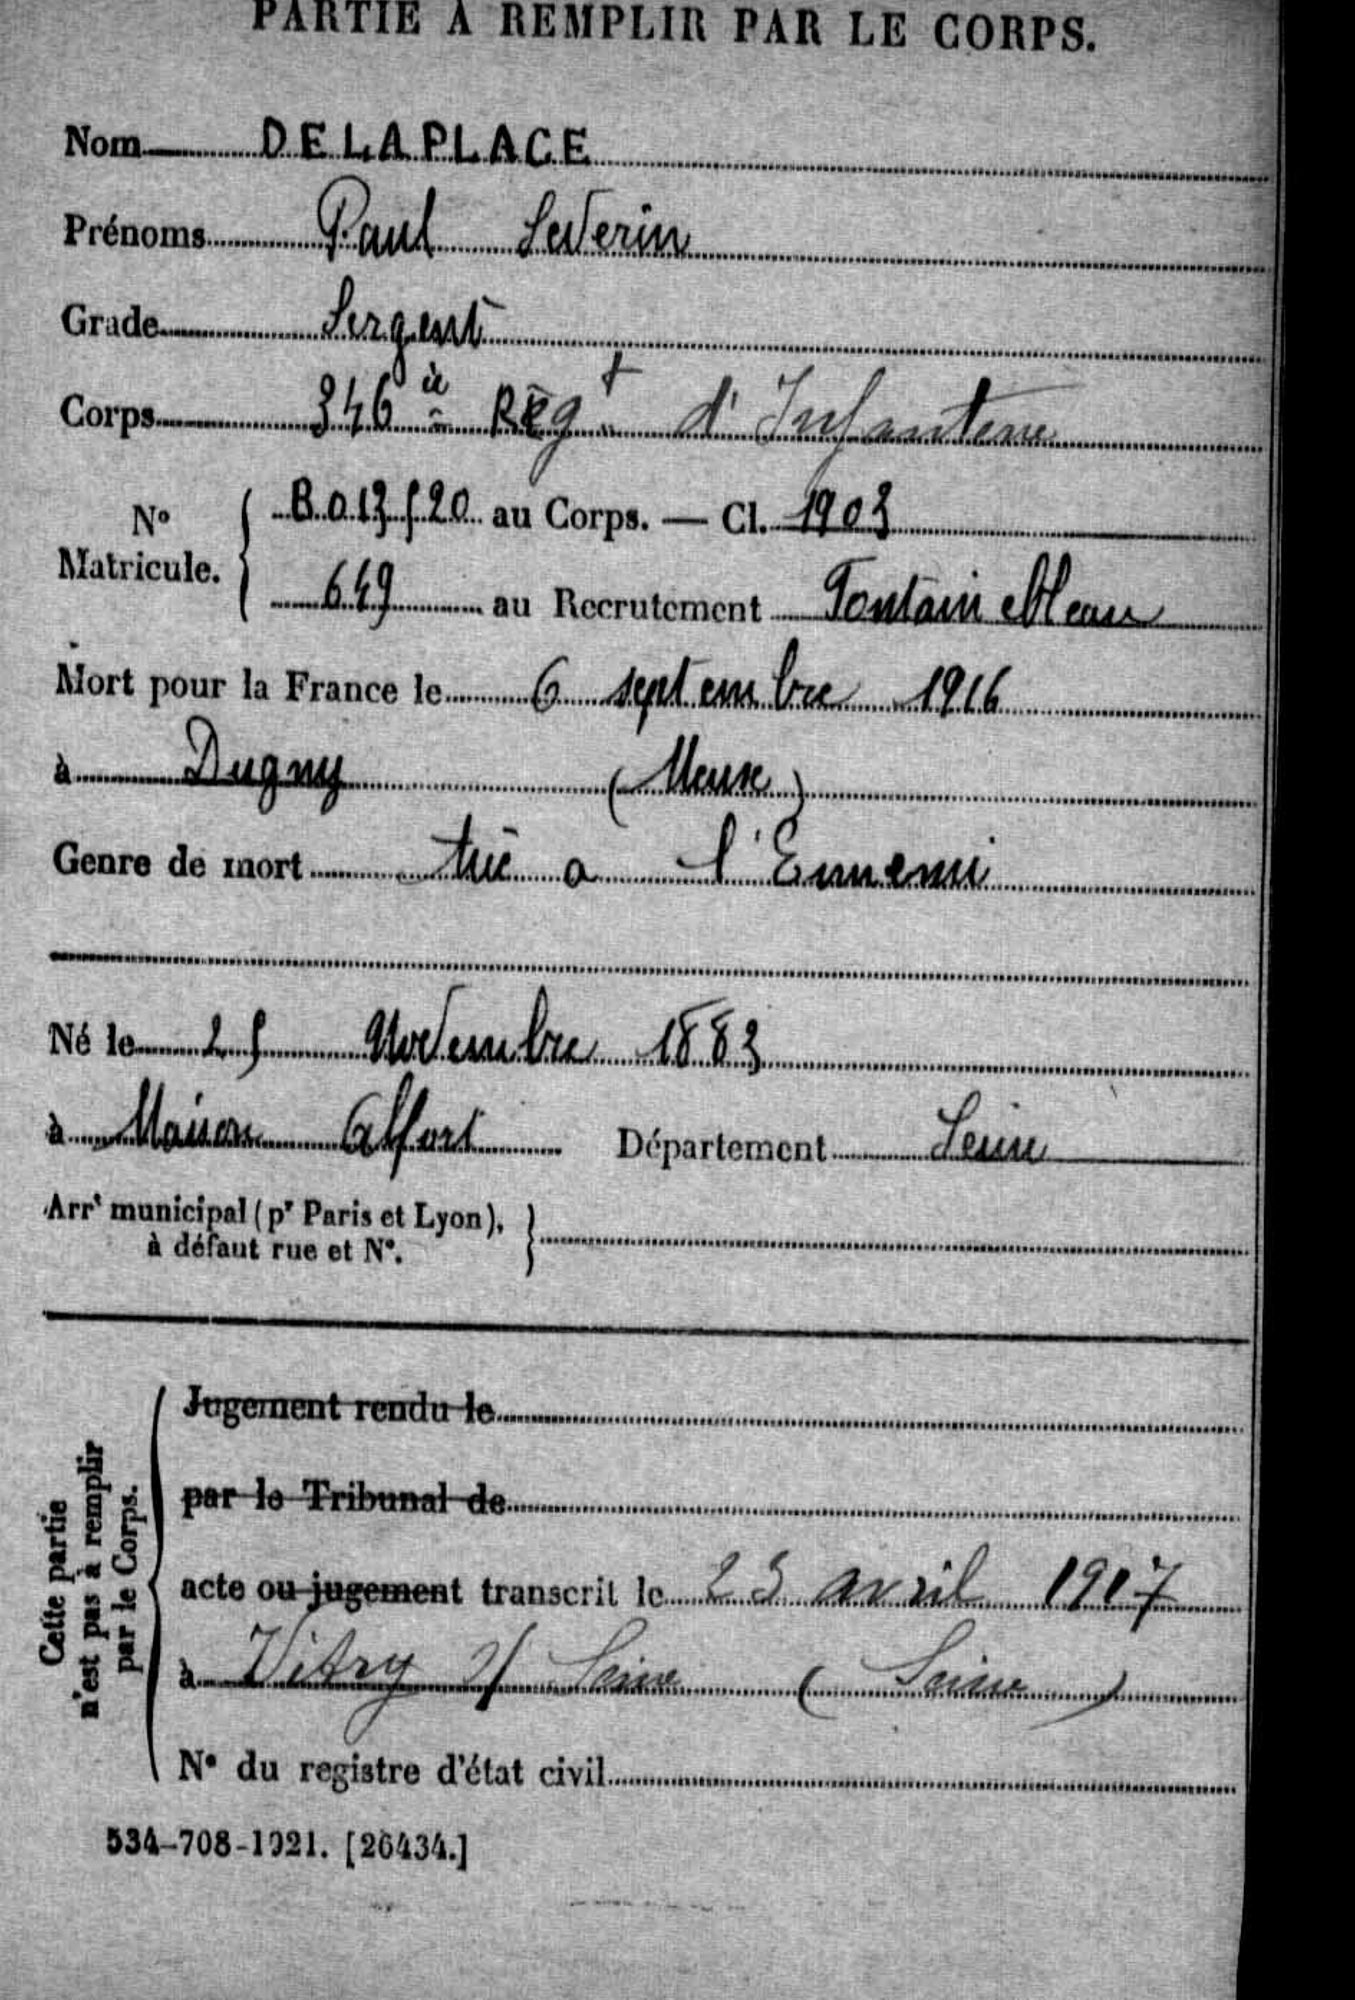 PARTIE À REMPLIR PAR LE CORPS.
Nom DELAPLACE
Prénoms Paul Severin
Grade Sergent
Corps 346è Règt d'Infanterie
No Matricule. B.013520 au Corps. — Cl. 1903
649 au Recrutement Fontainebleau
Mort pour la France le 6 septembre 1916
à Dugny (Meuse)
Genre de mort tué a l'Ennemi
Né le 25 Novembre 1883
à Maison Alfort Département Seine
Arrt municipal (pr Paris et Lyon),
à défaut rue et No.
Cette partie n'est pas à remplir par le Corps.
Jugement rendu le
par le Tribunal de
acte ou jugement transcrit le 23 avril 1917
à Vitry s/ Seine (Seine)
No du registre d'état civil
534-708-1921. [26434.]